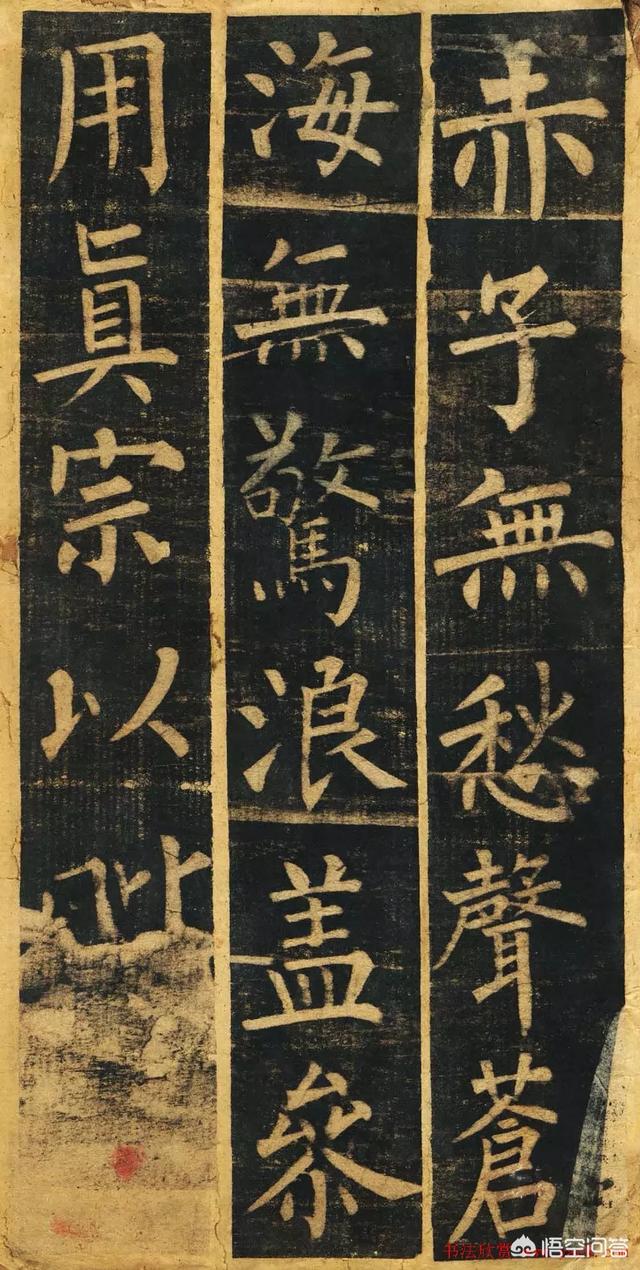 赤子無愁聲蒼
海無驚浪盖叅
用眞宗以
书法欣赏
悟空问答